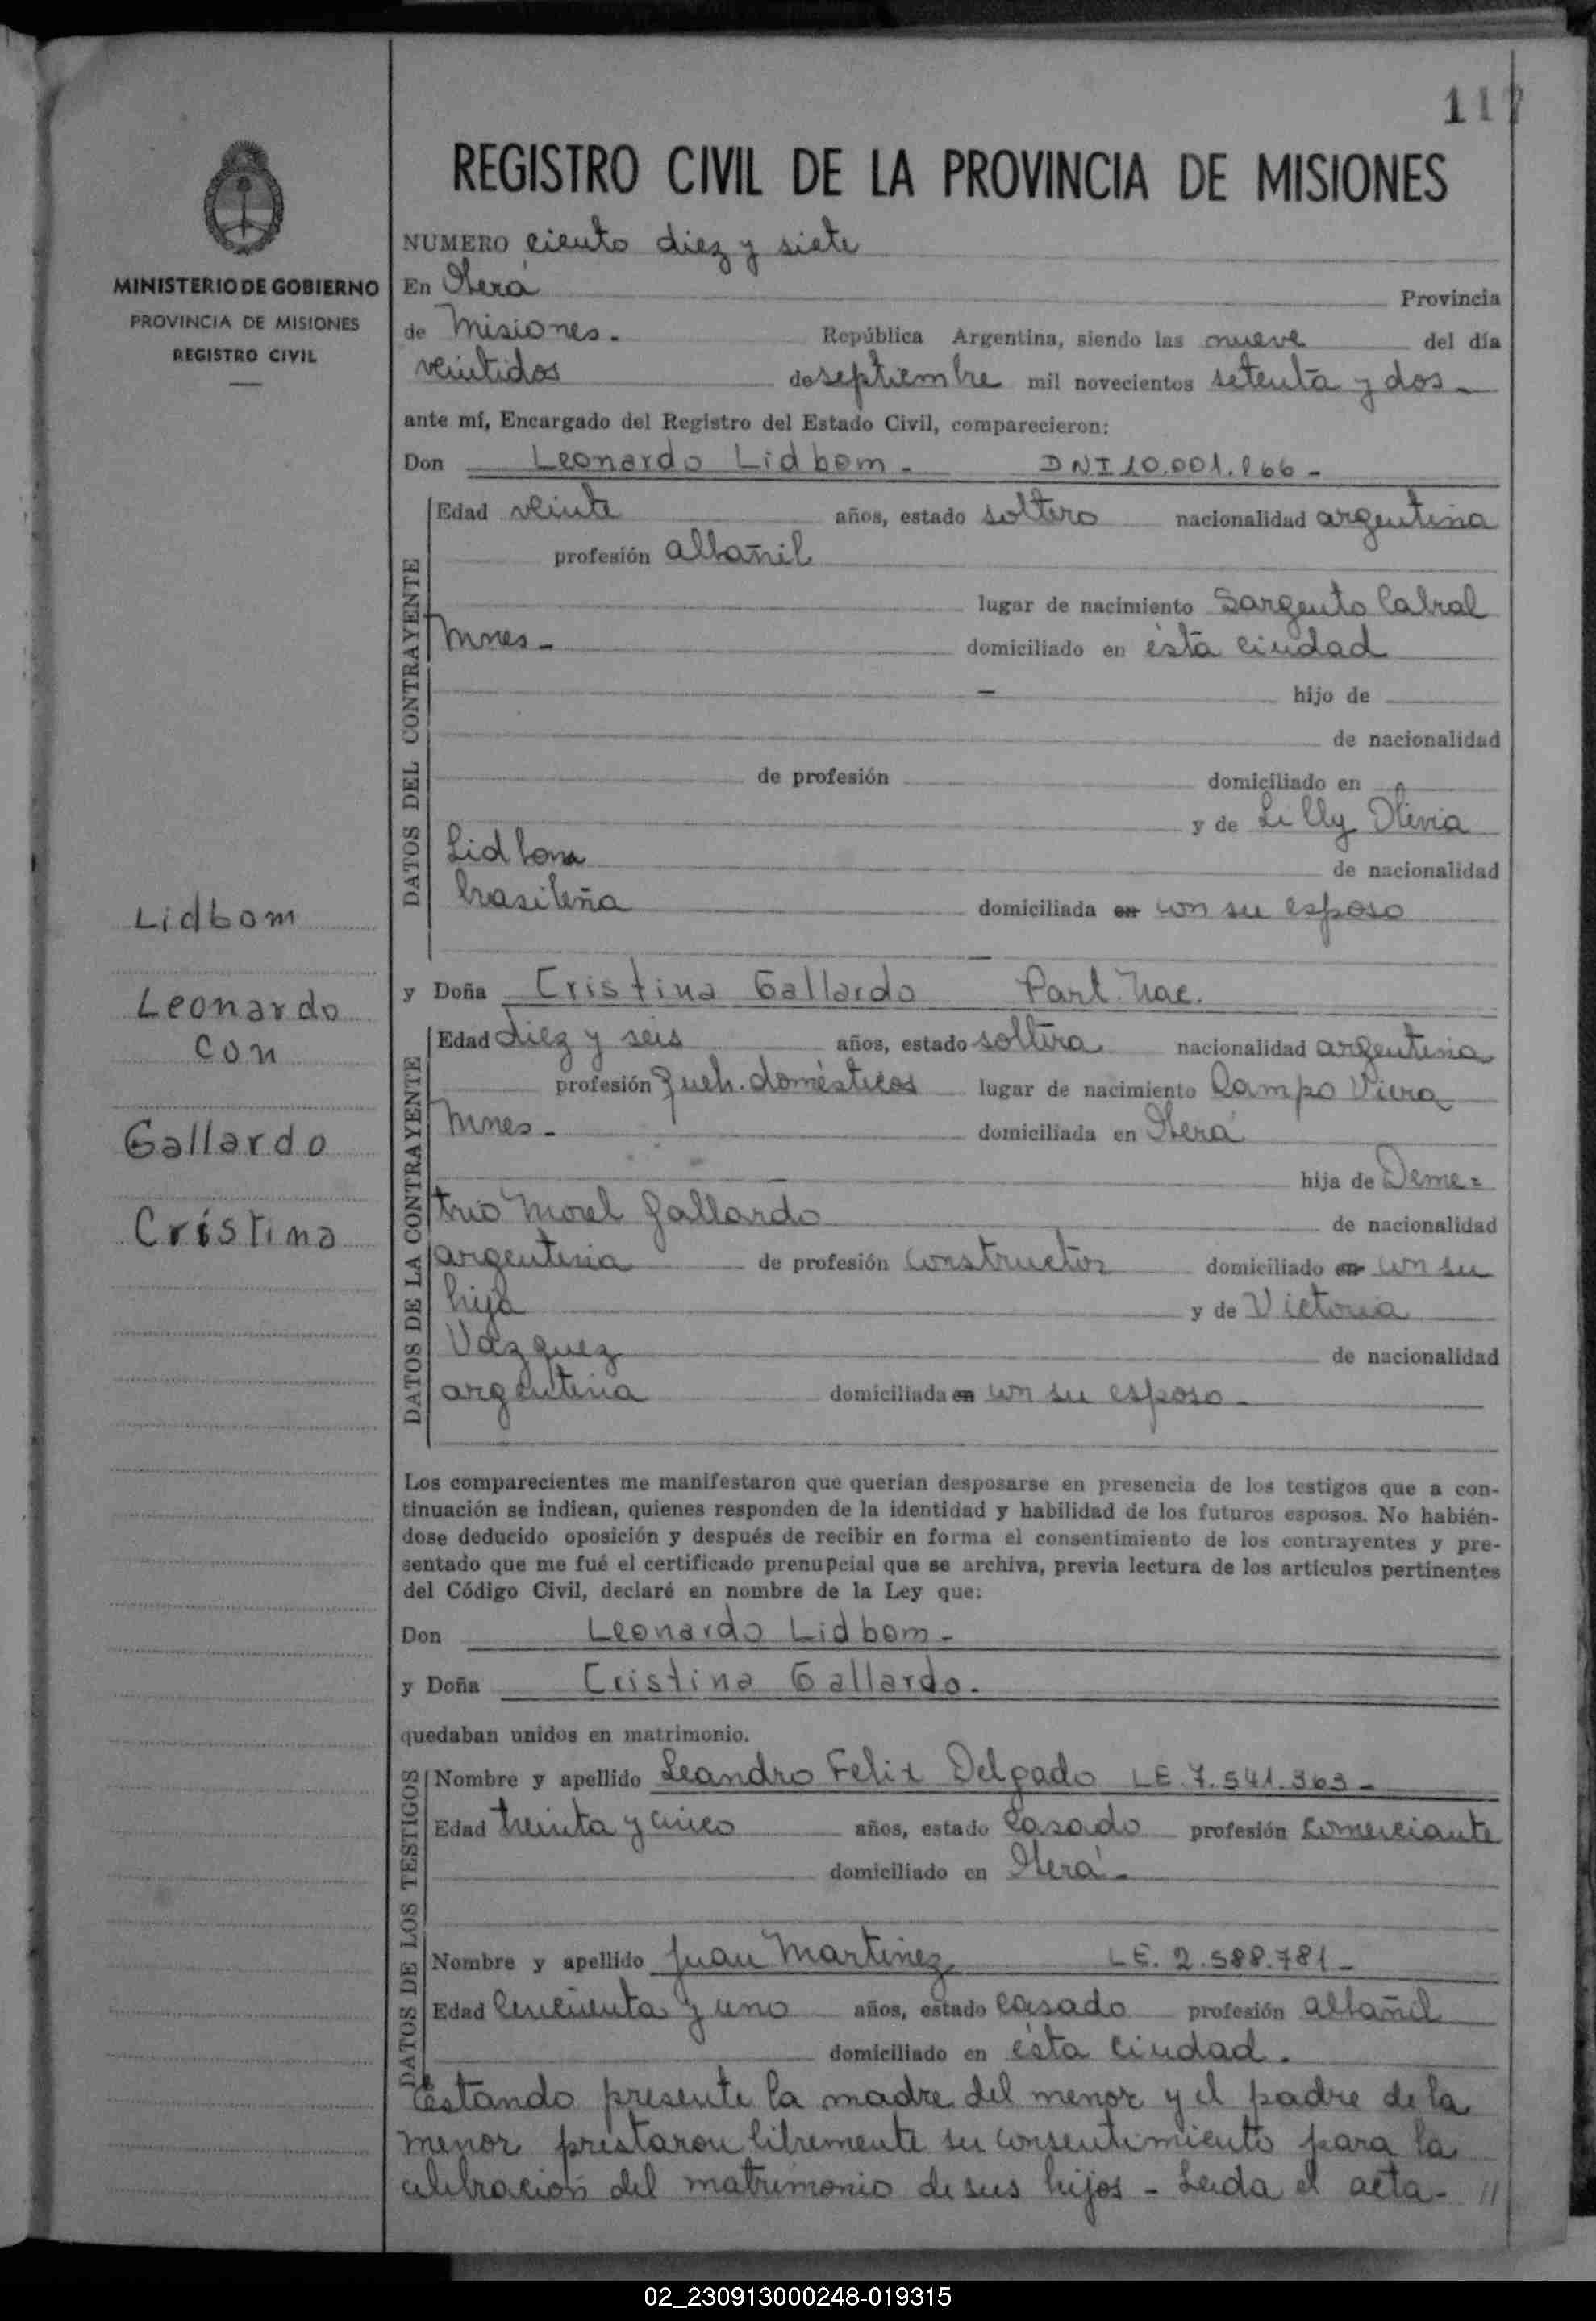 117
REGISTRO CIVIL DE LA PROVINCIA DE MISIONES
MINISTERIO DE GOBIERNO
PROVINCIA DE MISIONES
REGISTRO CIVIL
Lidbom
Leonardo
con
Gallardo
Cristina
NUMERO ciento diez y siete
En Oberá Provincia
de Misiones.- República Argentina, siendo las nueve del día
veintidos de septiembre mil novecientos setenta y dos -
ante mí, Encargado del Registro del Estado Civil, comparecieron:
Don Leonardo Lidbom - DNI 10.001.866 -
DATOS DEL CONTRAYENTE
Edad veinte años, estado soltero nacionalidad argentina
profesión albañil
lugar de nacimiento Sargento Cabral
Mnes - domiciliado en ésta ciudad
— hijo de
de nacionalidad
de profesión domiciliado en
y de Lilly Olivia
Lidbom de nacionalidad
brasileña domiciliada en con su esposo
y Doña Cristina Gallardo Part. Nac.
DATOS DE LA CONTRAYENTE
Edad diez y seis años, estado soltera nacionalidad argentina
profesión queh. domésticos lugar de nacimiento Campo Viera
Mnes - domiciliada en Oberá
hija de Deme=
trio Morel Gallardo de nacionalidad
argentina de profesión constructor domiciliado en con su
hija y de Victoria
Vazquez de nacionalidad
argentina domiciliada en con su esposo -
Los comparecientes me manifestaron que querían desposarse en presencia de los testigos que a con-
tinuación se indican, quienes responden de la identidad y habilidad de los futuros esposos. No habién-
dose deducido oposición y después de recibir en forma el consentimiento de los contrayentes y pre-
sentado que me fué el certificado prenupcial que se archiva, previa lectura de los artículos pertinentes
del Código Civil, declaré en nombre de la Ley que:
Don Leonardo Lidbom -
y Doña Cristina Gallardo.
quedaban unidos en matrimonio.
DATOS DE LOS TESTIGOS
Nombre y apellido Leandro Felix Delgado LE 7.541.363 -
Edad treinta y cinco años, estado casado profesión comerciante
domiciliado en Oberá -
Nombre y apellido Juan Martinez LE. 2.588.781 -
Edad cincuenta y uno años, estado casado profesión albañil
domiciliado en ésta ciudad.
Estando presente la madre del menor y el padre de la
menor prestaron libremente su consentimiento para la
celebración del matrimonio de sus hijos - Leida el acta - //
02_230913000248-019315